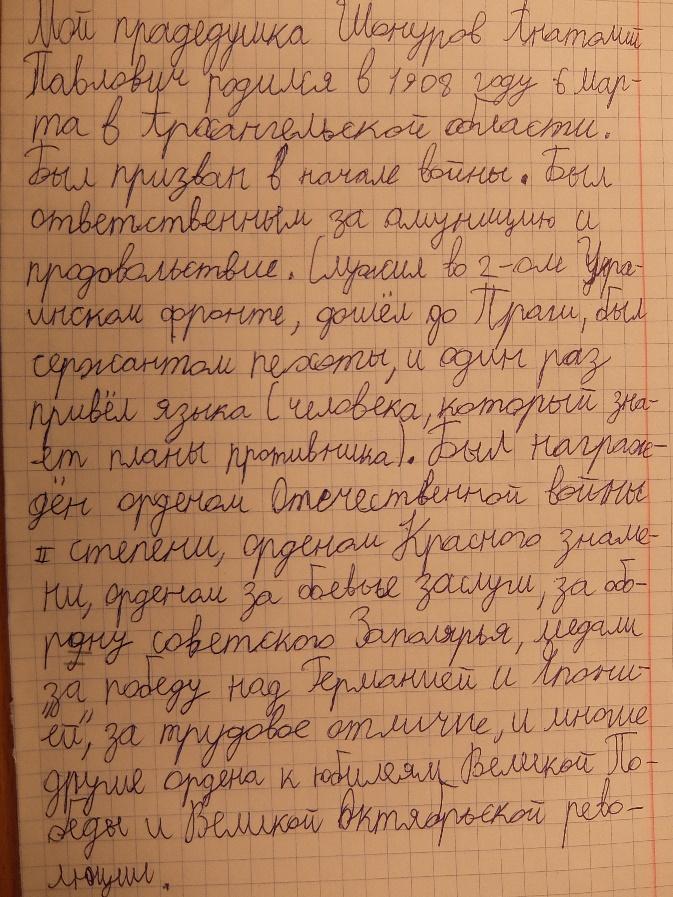 Мой прадедушка Шонуров Анатолий
Павлович родился в 1908 году 6 мар-
та в Архангельской области.
Был призван в начале войны. Был
ответственным за амуницию и
продовольствие. Служил во 2-ом Укра-
инском фронте, дошёл до Праги, был
сержантом пехоты, и один раз
привёл языка (человека, который зна-
ет планы противника). Был награж-
дён орденом Отечественной войны
II степени, орденом Красного знаме-
ни, орденом за боевые заслуги, за об-
рону советского Заполярья, медали
"за победу над Германией и Япони-
ей", за трудовое отличие, и многие
другие ордена к юбилеям Великой По-
беды и Великой Октябрьской рево-
люции.